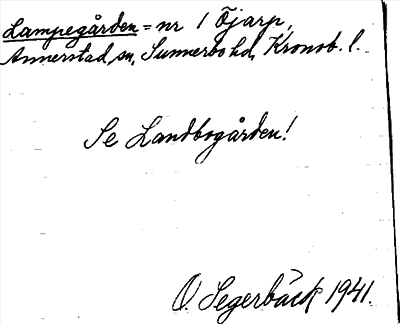 Lampegården = nr 1 Öjarp,
Annerstad sn, Sunnerbo hd, Kronob. l.
Se Landbogården!
O. Segerbäck 1941.